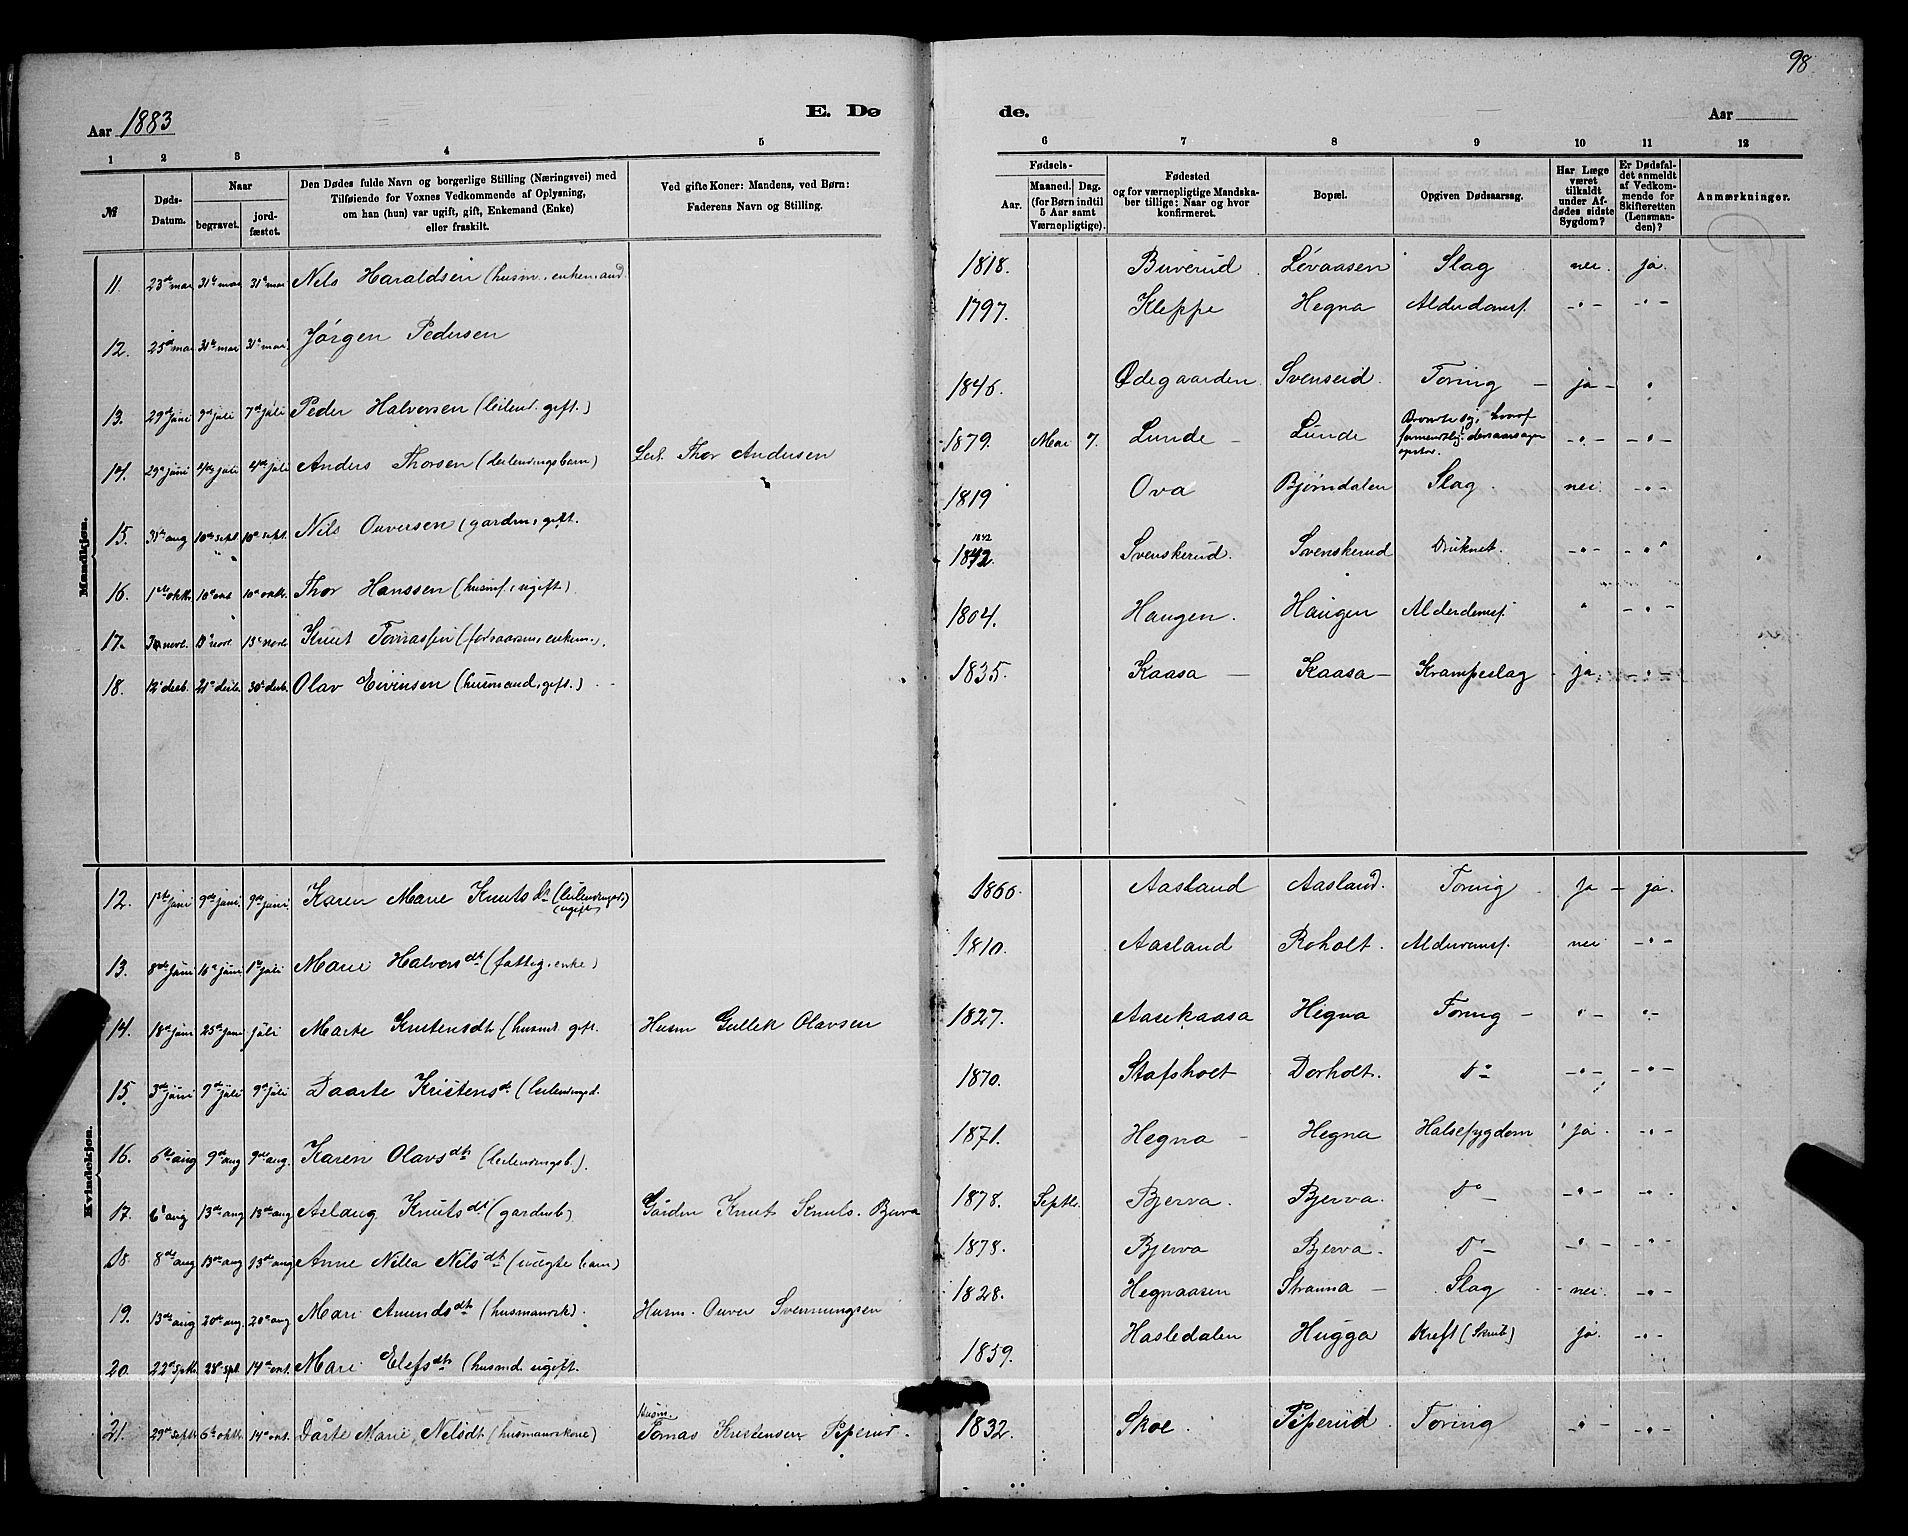 98
Aar 1883
E. Dø
de.
Aar
1 2 3 4 5 6 7 8 9 10 11 12
№
Døds-Datum.
Naar
begravet.
jord-fæstet.
Den Dødes fulde Navn og borgerlige Stilling (Næringsvei) med
Tilføiende for Voxnes Vedkommende af Oplysning,
om han (hun) var ugift, gift, Enkemand (Enke)
eller fraskilt.
Ved gifte Koner: Mandens, ved Børn:
Faderens Navn og Stilling.
Fødsels-
Aar.
Maaned. Dag.
(for Børn indtil
5 Aar samt
Værnepligtige).
Fødested
og for værnepligtige Mandska-
ber tillige: Naar og hvor
konfirmeret.
Bopæl.
Opgiven Dødsaarsag.
Har Læge
været
tilkaldt
under Af-
dødes sidste
Sygdom?
Er Dødsfal-
det anmeldt
af Vedkom-
mende for
Skifteretten
(Lensman-
den)?
Anmærkninger.
Mandkjøn.
11. 23de mai 31te mai 31te mai Nils Haraldsen (husm. enkemand. 1818. Buverud Løvaasen Slag nei. ja.
12. 25de mai 31te mai 31te mai Jørgen Pedersen 1797. Kleppe Hegna Alderdomsf. -"- -"-
13. 29de juni 7de juli 7de juli Peder Halvorsen (leilend. gift.) 1846. Ødegaarden Svenseid. Tæring - ja - "
14. 29de juni 4de juli 4de juli Anders Thorsen (leilendingsbarn) Leil. Thor Andersen 1879. Mai 7. Lunde - Lunde Brændte sig, hvoraf
formentlig dødsaarsagen
opstod. -"- -"-
15. 31te aug 10de sept. 10de sept. Nils Ouversen (gardm, gift. 1819 Ova Bjørndalen Slag. nei. -"-
16. 1ste oktr. 10de okt 10de oktr. Thor Hanssen (husmf. ugift) 1842
1842. Svenskerud. Svenskerud Druknet. -"- -"-
17. novb. 13de novb. Knut Tomassen (føraasm, enkem.). 1804. Haugen. Haugen Alderdomsf. " -"-
18. 12te desb. 21de desb. 30te desb. Olav Eivinsen (husmand, gift.) 1835. Kaasa - Kaasa - Krampeslag ja -"-
Kvindekjøn.
12. 1ste juni 9de juni. 9de juni. Karen Marie Knutsdr. (leilendingsd.)
(ugift) 1866. Aasland Aasland. Tæring ja - ja.
13. 8de juni 16de juni 1ste juli Mari Halvorsdt. (fattig, enke) 1810. Aasland Roholt. Alderdomsf. nei -"-
14. 18de juni 25de juni juli Marte Knutensdt (husmd. gift. Husm Gullek Olavsen 1827. Aasekaasa Hegna Tæring - "- -"-
15. 3de juni 9de juli 9de juli Daarte Kristensdt. (leilendingsd. 1870. Stafsholt Dorholt. Do -"- -"-
16. 6te aug 9de aug 9de aug. Karen Olavsdtr (leilendingsb.). 1871. Hegna - Hegna Halsesygdom ja. -"-
17. 6te aug 13de aug 13de aug Aslaug Knutsdt (gardmb). Gårdm Knut Knuts. Bjerva 1878. Septb. Bjerva. Bjerva. Do - -"- -"-
18. 8de aug 13de aug 13de aug Anne Nilla Nilsdt (uægte barn) 1878. Bjerva Bjerva. Do - -"- -"-
19. 13de aug 20de aug. 20de aug Mari Amundsdt (husmansk). Husm. Ouver Svenningsen 1828. Hegnaasen Stranna - Slag nei. -"-
20. 22de septb. 28de spt. 14de okt. Mari Elefsdtr (husmd. ugift. 1859. Hasledalen Hugga Kreft (Skrub) ja. -"-
21. 29de septb 6te oktr. 14de okt. Dårte Marie Nilsdt (husmanskone) Husm.
Tomas Kristensen Piperud. 1832. Skoe. Piperud. Tæring -"- -"-